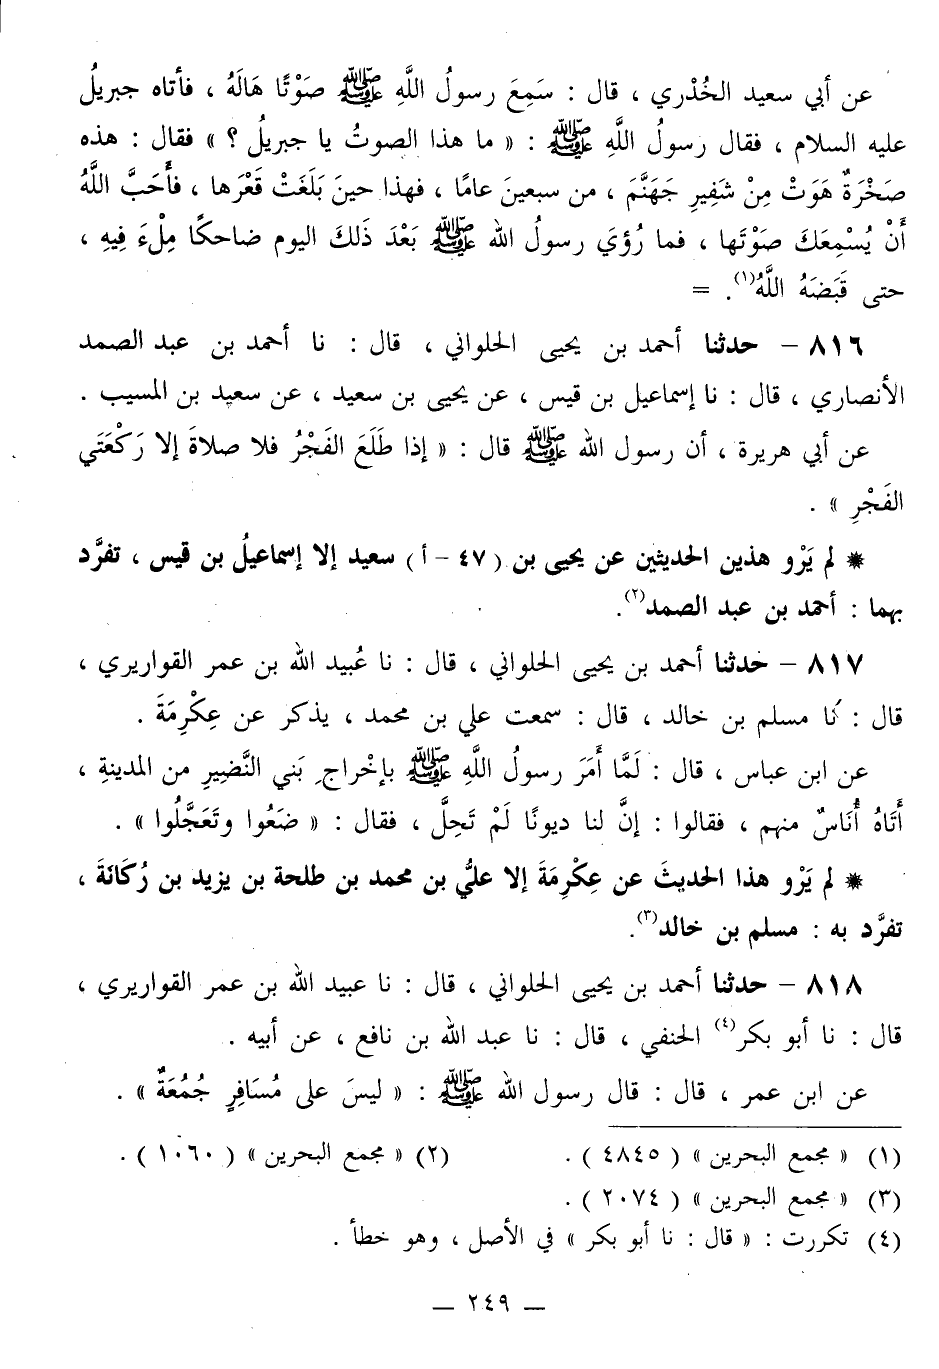 عن أبي سعيد الخُدْري ، قال : سَمِعَ رسولُ اللَّهِ ﷺ صَوْتًا هَالَهُ ، فأتاه جبريلُ
عليه السلام ، فقال رسولُ اللَّهِ ﷺ : « ما هذا الصوتُ يا جبريلُ ؟ » فقال : هذه
صَخْرَةٌ هَوَتْ مِنْ شَفِيرِ جَهَنَّمَ ، من سبعينَ عامًا ، فهذا حينَ بَلَغَتْ قَعْرَها ، فأَحَبَّ اللَّهُ
أَنْ يُسْمِعَكَ صَوْتَها ، فما رُؤيَ رسولُ الله ﷺ بَعْدَ ذَلكَ اليوم ضاحكًا مِلْءَ فِيهِ ،
حتى قَبَضَهُ اللَّهُ(١). =
٨١٦ – حدثنا أحمد بن يحيى الحلواني ، قال : نا أحمد بن عبد الصمد
الأنصاري ، قال : نا إسماعيل بن قيس ، عن يحيى بن سعيد ، عن سعيد بن المسيب .
عن أبي هريرة ، أن رسول الله ﷺ قال : « إذا طَلَعَ الفَجْرُ فلا صلاةَ إلا رَكْعَتَي
الفَجْرِ » .
* لم يَرْوِ هذين الحديثين عن يحيى بن ( ٤٧ – أ ) سعيد إلا إسماعيلُ بن قيس ، تفرَّد
بهما : أحمد بن عبد الصمد(٢).
٨١٧ – حدثنا أحمد بن يحيى الحلواني ، قال : نا عُبيد الله بن عمر القواريري ،
قال : نا مسلم بن خالد ، قال : سمعت علي بن محمد ، يذكر عن عِكْرِمَةَ .
عن ابن عباس ، قال : لَمَّا أَمَرَ رسولُ اللَّهِ ﷺ بإخْراجِ بَني النَّضِيرِ من المدينةِ ،
أَتَاهُ أُنَاسٌ منهم ، فقالوا : إنَّ لنا ديونًا لَمْ تَحِلَّ ، فقال : « ضَعُوا وتَعَجَّلُوا » .
* لم يَرْوِ هذا الحديثَ عن عِكْرِمَةَ إلا عليُّ بن محمد بن طلحة بن يزيد بن رُكَانَةَ ،
تفرَّد به : مسلم بن خالد(٣).
٨١٨ – حدثنا أحمد بن يحيى الحلواني ، قال : نا عبيد الله بن عمر القواريري ،
قال : نا أبو بكر(٤) الحنفي ، قال : نا عبد الله بن نافع ، عن أبيه .
عن ابن عمر ، قال : قال رسول الله ﷺ : « ليسَ على مُسَافِرٍ جُمُعَةٌ » .
(١) « مجمع البحرين » ( ٤٨٤٥ ) . (٢) « مجمع البحرين » ( ١٠٦٠ ) .
(٣) « مجمع البحرين » ( ٢٠٧٤ ) .
(٤) تكررت : « قال : نا أبو بكر » في الأصل ، وهو خطأ .
— ٢٤٩ —